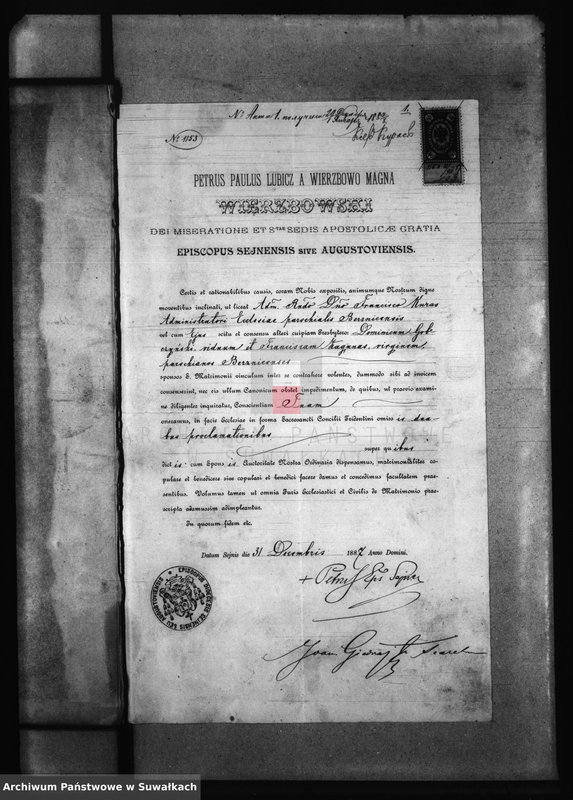 No 1153
PETRUS PAULUS LUBICZ A WIERZBOWO MAGNA
WIERZBOWSKI
DEI MISERATIONE ET STAE SEDIS APOSTOLICÆ GRATIA
EPISCOPUS SEJNENSIS SIVE AUGUSTOVIENSIS.
Certis et rationabilibus causis, coram Nobis expositis, animumque Nostrum digne
moventibus inclinati, ut liceat Adm. Rndo Dno Francisco Kuras
Administratori Ecclesiae parochialis Berznicensis
vel cum Ejus scitu et consensu alteri cuipiam Presbytero: Dominicum
viduum et Franciscam virginem,
parochianos Berznicenses
sponsos S. Matrimonii vinculum inter se contrahere volentes, dummodo sibi ad invicem
consenserint, nec eis ullum Canonicum obstet impedimentum, de quibus, ut praevio exami-
ne diligenter inquiratur, Conscientiam Tuam
oneramus, in facie Ecclesiae in forma Sacrosancti Concilii Tridentini omiss is dua
bus proclamationibus
super quibus
dict is: cum Spons is Auctoritate Nostra Ordinaria dispensamus, matrimonialiter co-
pulare et benedicere sive copulari et benedici facere damus et concedimus facultatem prae-
sentibus. Volumus tamen ut omnia Juris Ecclesiastici et Civilis de Matrimonio prae-
scripta adamussim adimpleantur.
In quorum fidem etc.
Datum Sejnis die 31 Decembris 1887 Anno Domini.
Archiwum Państwowe w Suwałkach